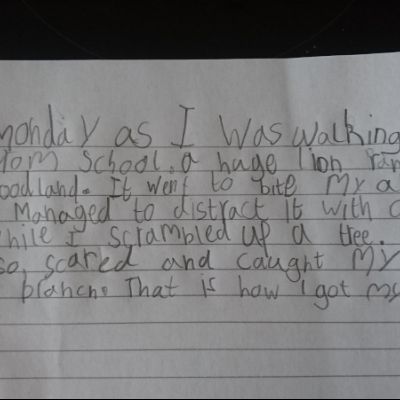 monday as I was walking
rom school, a huge lion ran
oodland. It went to bite my a
Managed to distract it with a
hile I scrambled up a tree.
so scared and caught my
branch. That is how I got my